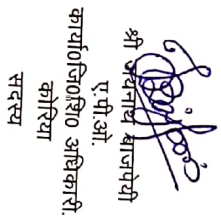 श्री जयनाथ बाजपेयी
ए.पी.ओ.
कार्या०जि०शि० अधिकारी.
कोरिया
सदस्य